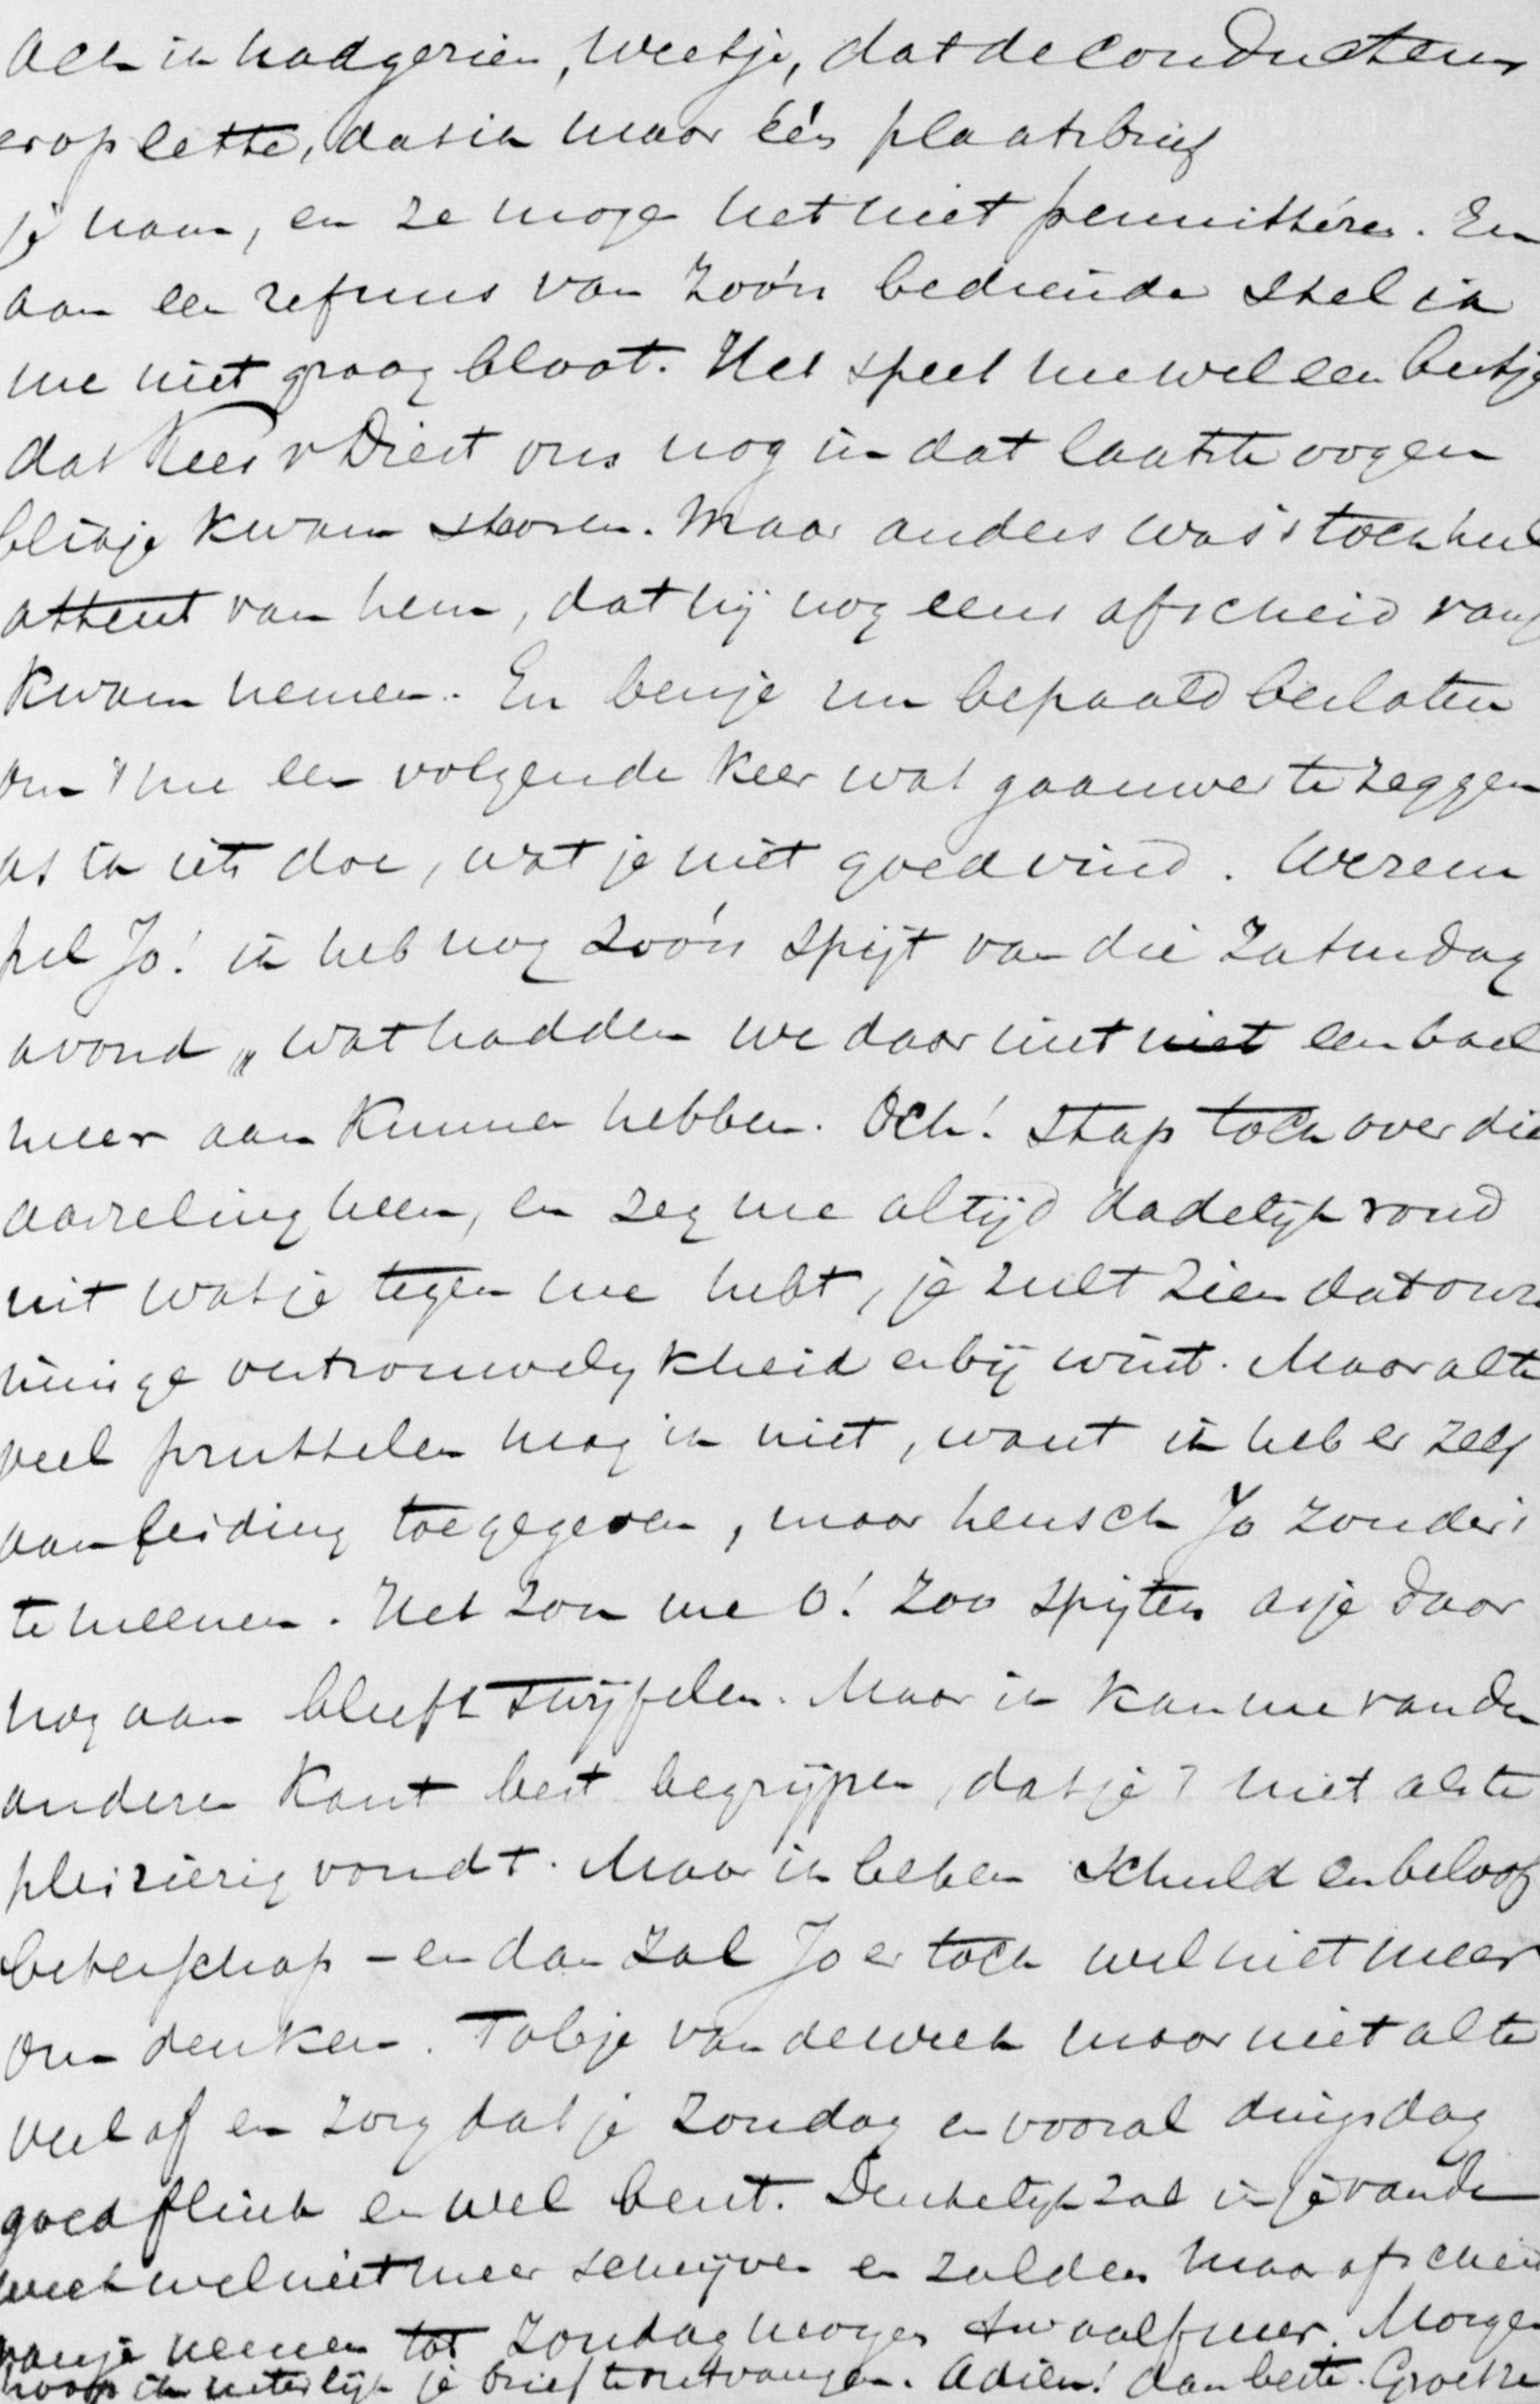 Ach ik had gezien, weetje, dat de conducteur
erop lette, dat ik maar één plaatsbrief
je nam, en ze mogen het niet permitteren. En
aan een refuus van zoó'n bediende stel ik
me niet graag bloot. Het speet me wel een beetje
dat Kees v Diest ons nog in dat laatste oogen
blikje kwam storen. Maar anders was 't toch heel
attent van hem, dat hij nog eens afscheid van je
kwam nemen. En ben je nu bepaald besloten
om 't me een volgende keer wat gaauwer te zeggen
as ik iets doe, wat je niet goed vind.
pel Jo! ik heb nog zoó'n spijt van die Zaturdag
avond „ wat hadden we daar niet niet een boel
meer aan kunnen hebben. Och! Stap toch over die
aarzeling heen, en zeg me altijd dadelijk rond
uit wat je tegen me hebt, je zult zien dat onze
innige vertrouwelijkheid erbij wint. Maar al te
veel pruttelen mag ik niet, want ik heb er zelf
aanleiding toe gegeven, maar heusch Jo zonder 't
te meenen. Het zou me o! zoo spijten as je daar
nog aan bleeft twijfelen. Maar ik kan me van den
anderen kant best begrijpen, dat je 't niet al te
pleizierig vondt. Maar ik beken schuld en beloof
beterschap – en dan zal Jo er toch wel niet meer
om denken. Tob je van de week maar niet al te
veel af en zorg dat je Zondag en vooral dingsdag
goed flink en wel bent. Denkelijk zal ik je van de
week wel niet meer schrijven en zal dan maar afscheid
van je nemen tot Zondag morgen twaalf uur. Morgen
hoop ik uiterlijk je brief te ontvangen. Adieu! dan beste. Groet ze